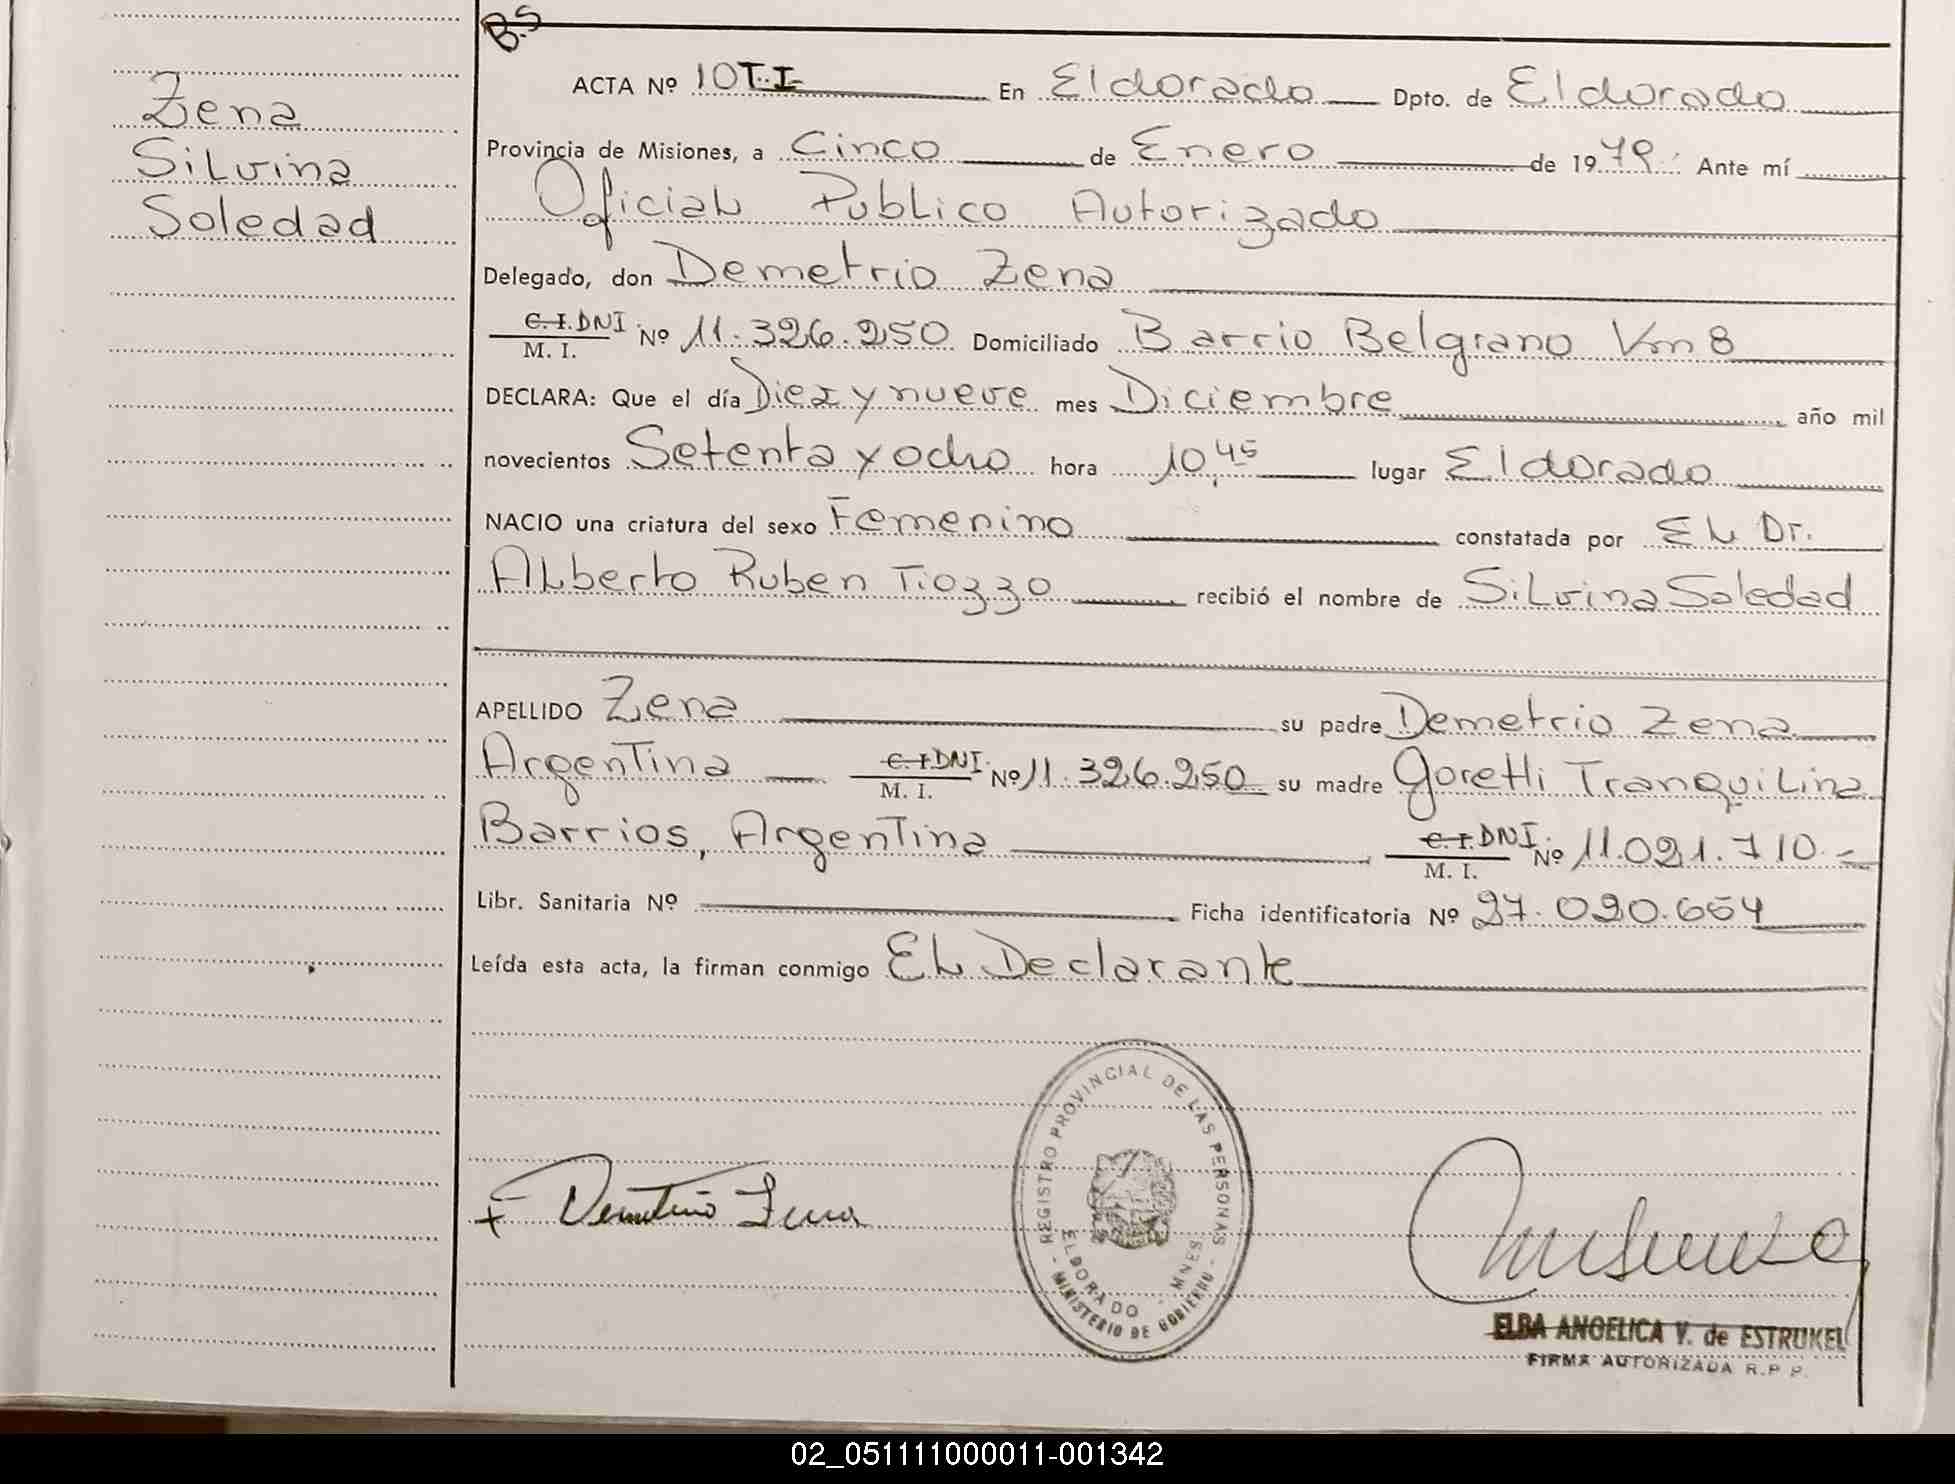 B.S
Zena
Silvina
Soledad
ACTA Nº 10 T.I- En Eldorado Dpto. de Eldorado
Provincia de Misiones, a Cinco de Enero de 1979. Ante mí
Oficial Publico Autorizado
Delegado, don Demetrio Zena
C.I. DNI M. I. Nº 11.326.250 Domiciliado Barrio Belgrano Km 8
DECLARA: Que el día Diez y nueve mes Diciembre año mil
novecientos Setenta y ocho hora 10,45 lugar Eldorado
NACIO una criatura del sexo Femenino constatada por EL Dr.
Alberto Ruben Tiozzo recibió el nombre de Silvina Soledad
APELLIDO Zena su padre Demetrio Zena
Argentina C.I DNI. M. I. Nº 11.326.250 su madre Goretti Tranquilina
Barrios, Argentina C.I. DNI. M. I. Nº 11.021.710.-
Libr. Sanitaria Nº Ficha identificatoria Nº 27.020.654
Leída esta acta, la firman conmigo EL Declarante
+ Demetrio Zena
REGISTRO PROVINCIAL DE LAS PERSONAS
ELDORADO - MNES.
- MINISTERIO DE GOBIERNO -
ELBA ANGELICA V. de ESTRUKEL
FIRMA AUTORIZADA R.P.P.
02_051111000011-001342